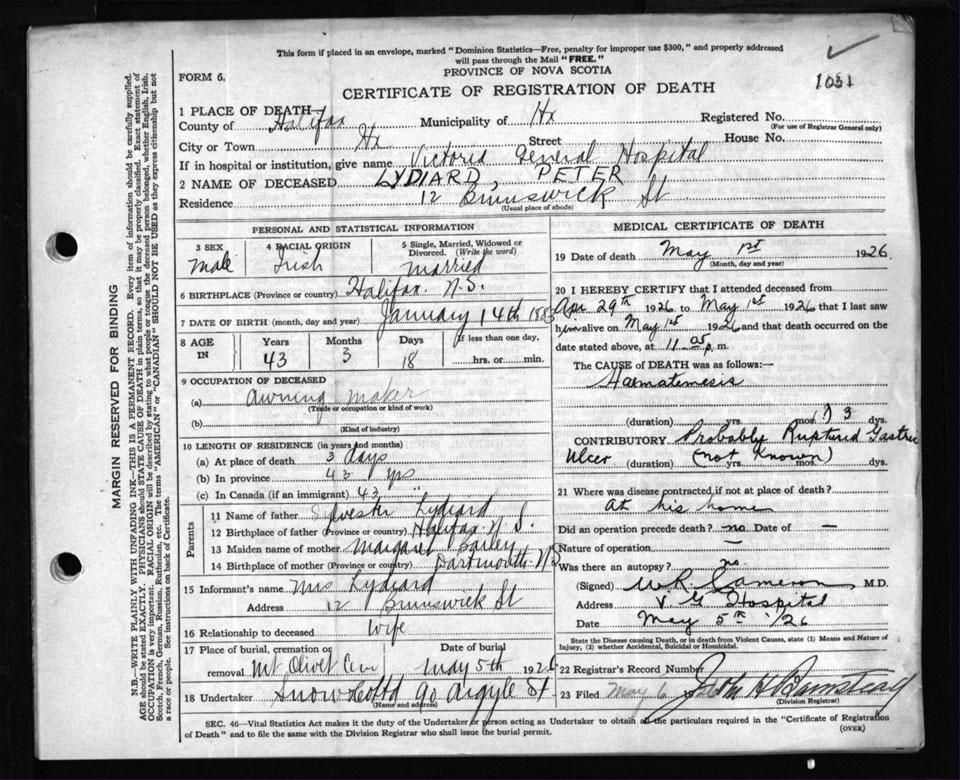 This form if placed in an envelope, marked "Dominion Statistics—Free, penalty for improper use $300," and properly addressed
will pass through the Mail "FREE."
PROVINCE OF NOVA SCOTIA
FORM 6.
CERTIFICATE OF REGISTRATION OF DEATH
1031
1 PLACE OF DEATH—
County of Halifax Municipality of Hx Registered No.
(For use of Registrar General only)
City or Town Hx Street House No.
If in hospital or institution, give name Victoria General Hospital
2 NAME OF DECEASED LYDIARD, PETER
Residence 12 Brunswick St
(Usual place of abode)
PERSONAL AND STATISTICAL INFORMATION
3 SEX Male
4 RACIAL ORIGIN Irish
5 Single, Married, Widowed or Divorced. (Write the word) Married
6 BIRTHPLACE (Province or country) Halifax N.S.
7 DATE OF BIRTH (month, day and year) January 14th 1883
8 AGE IN Years 43 Months 3 Days 18 If less than one day, ...hrs. or ...min.
9 OCCUPATION OF DECEASED
(a) Awning maker
(Trade or occupation or kind of work)
(b)
(Kind of industry)
10 LENGTH OF RESIDENCE (in years and months)
(a) At place of death 3 days
(b) In province 43 yrs
(c) In Canada (if an immigrant) 43
Parents
11 Name of father Sylvester Lydiard
12 Birthplace of father (Province or country) Halifax N.S.
13 Maiden name of mother Margaret
14 Birthplace of mother (Province or country) Dartmouth N.S
15 Informant's name Mrs Lydiard
Address 12 Brunswick St
16 Relationship to deceased Wife
17 Place of burial, cremation or removal Mt Olivet Cem Date of burial May 5th 1926
18 Undertaker Snow & Co Ltd 90 Argyle St
(Name and address)
MEDICAL CERTIFICATE OF DEATH
19 Date of death May 1st 1926
(Month, day and year)
20 I HEREBY CERTIFY that I attended deceased from
Apr 29th 1926 to May 1st 1926 that I last saw
him alive on May 1st 1926 and that death occurred on
date stated above, at 11.05 p. m.
The CAUSE of DEATH was as follows:—
Haematemesis
(duration) yrs. mos. (?) 3 dys.
CONTRIBUTORY Probably Ruptured Gastric
Ulcer (duration) (not Known) yrs. mos. dys.
21 Where was disease contracted, if not at place of death?
At his home
Did an operation precede death? no Date of —
Nature of operation —
Was there an autopsy? no.
(Signed) W.R. Cameron M.D.
Address V. G Hospital
Date May 5th /26
State the Disease causing Death, or in death from Violent Causes, state (1) Means and Nature of
Injury, (2) whether Accidental, Suicidal or Homicidal.
22 Registrar's Record Number
23 Filed May 6 John H
(Division Registrar)
SEC. 46—Vital Statistics Act makes it the duty of the Undertaker or person acting as Undertaker to obtain all the particulars required in the "Certificate of Registration
of Death" and to file the same with the Division Registrar who shall issue the burial permit.
(OVER)
MARGIN RESERVED FOR BINDING
N.B.—WRITE PLAINLY WITH UNFADING INK—THIS IS A PERMANENT RECORD. Every item of information should be carefully supplied.
AGE should be stated EXACTLY. PHYSICIANS should STATE CAUSE OF DEATH in plain terms, so that it may be properly classified. Exact statement of
OCCUPATION is very important. RACIAL ORIGIN will be described by stating to what people or tongue the deceased person belonged, whether English, Irish,
Scotch, French, German, Russian, Ruthenian, etc. The terms "AMERICAN" or "CANADIAN" SHOULD NOT BE USED as they express citizenship but not
a race or people. See instructions on back of Certificate.